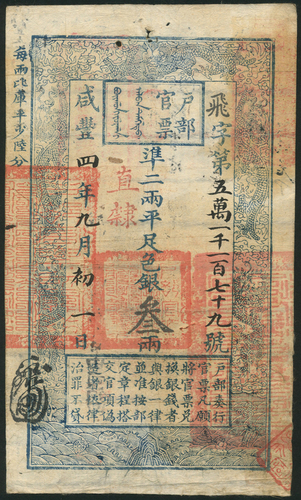 戶部
官票
飛字第五萬一千一百七十九號
准二兩平足色銀叄兩
直隸
咸豐四年九月初一日
每兩比庫平少陸分
戶部奏行
官票凡願
將官票兌
換銀錢者
與銀一律
並准按部
定章程搭
交官項偽
造者依律
治罪不貸